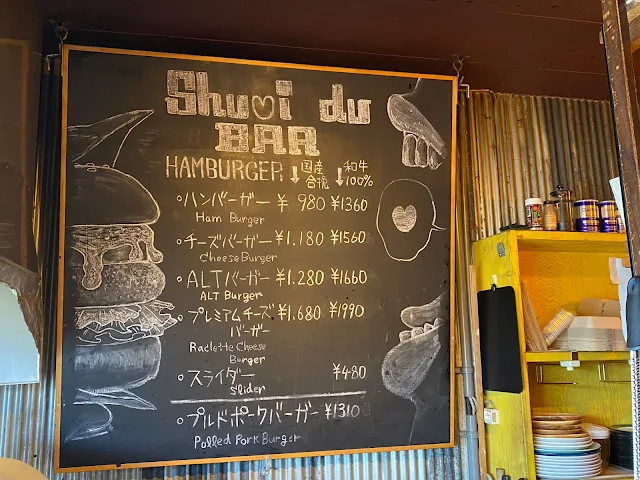 Shuvi du
BAR
HAMBURGER ↓国産合挽 ↓和牛100%
・ハンバーガー ¥ 980 ¥1360
Ham Burger
・チーズバーガー ¥1.180 ¥1560
Cheese Burger
・ALTバーガー ¥1.280 ¥1660
ALT Burger
・プレミアムチーズ ¥1.680 ¥1990
バーガー
Raclette Cheese
Burger
・スライダー ¥480
Slider
・プルドポークバーガー ¥1310
Pulled Pork Burger